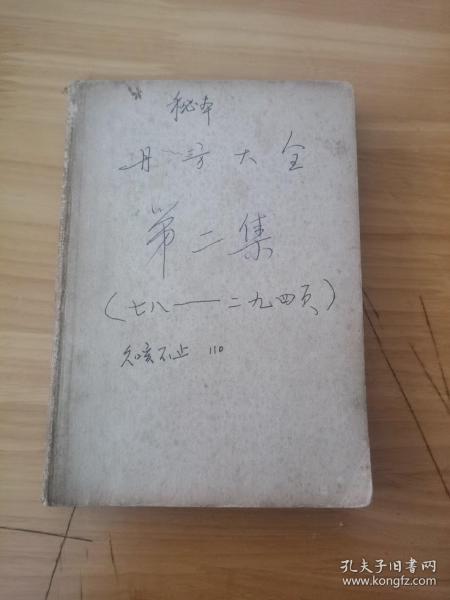 秘本
丹方大全
第二集
(七八——二九四页)
久咳不止 110
孔夫子旧书网
www.kongfz.com